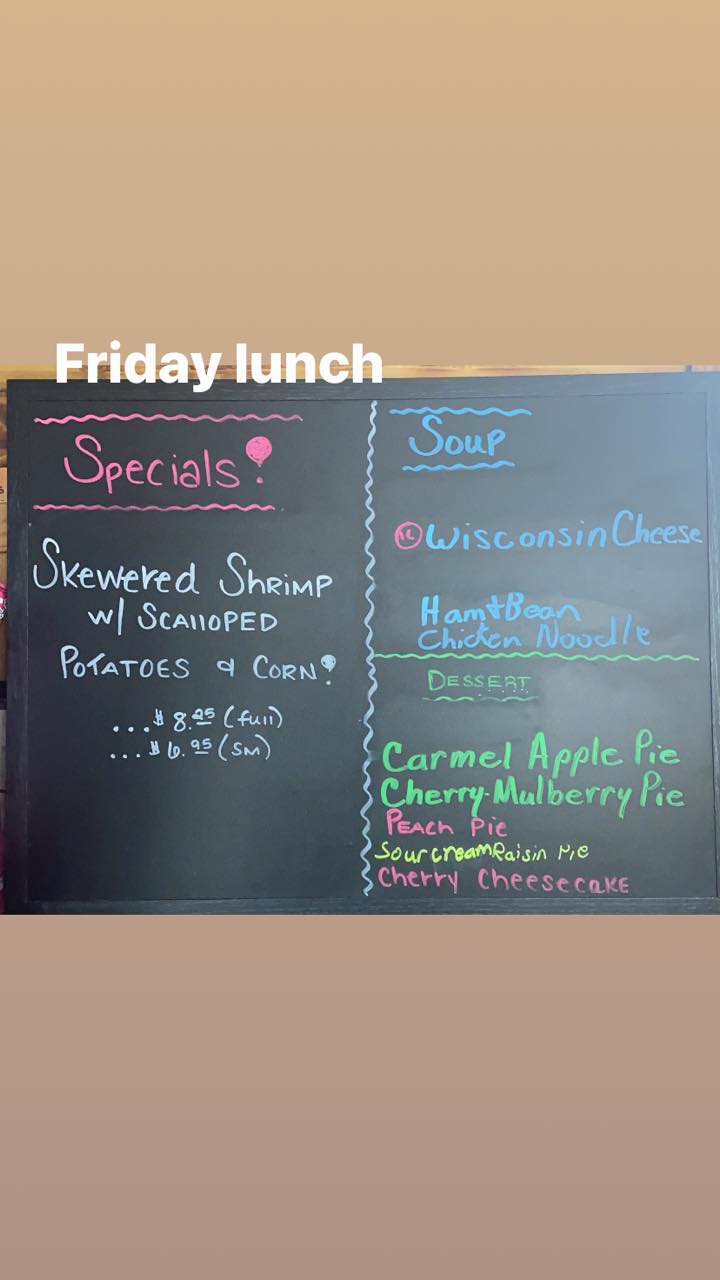 Friday lunch
Specials!
Skewered Shrimp
w/ Scalloped
Potatoes & Corn!
...$8.95 (full)
...$6.95 (sm)
Soup
Wisconsin Cheese
Ham+Bean
Chicken Noodle
Dessert
Carmel Apple Pie
Cherry-Mulberry Pie
Peach Pie
Sourcream Raisin Pie
Cherry Cheesecake